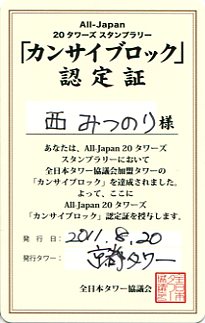 All-Japan
20 タワーズ スタンプラリー
「カンサイブロック」
認定証
西 みつのり 様
あなたは、All-Japan 20 タワーズ
スタンプラリーにおいて
全日本タワー協議会加盟タワーの
「カンサイブロック」を達成されました。
よって、ここに
All-Japan 20 タワーズ
「カンサイブロック」認定証を授与します。
発 行 日： 2011.8.20
発行タワー： 京都タワー
全日本タワー協議会